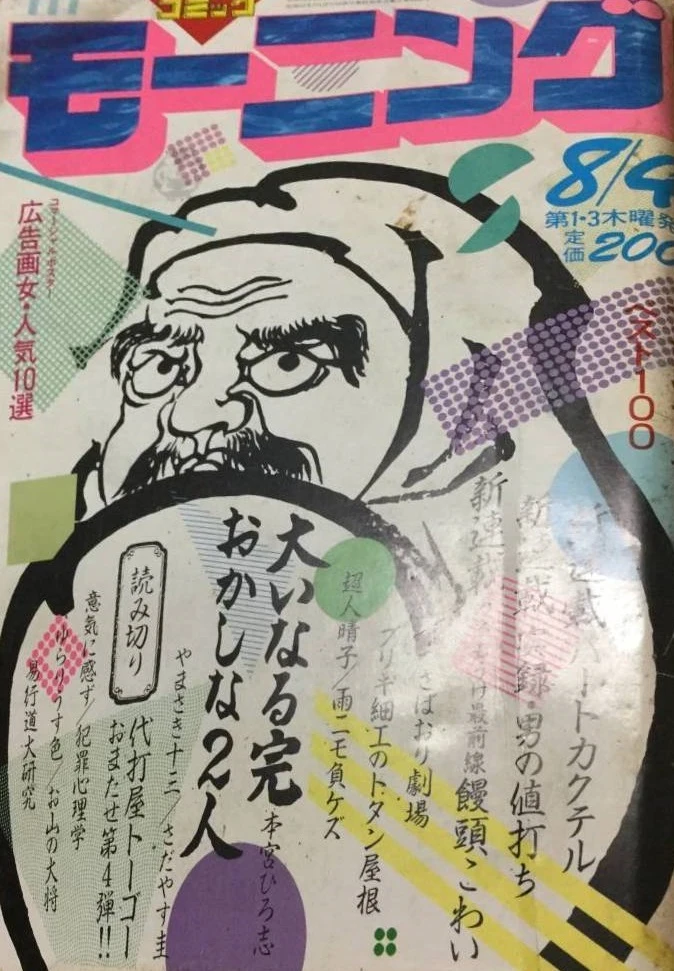 コミック
モーニング
8/4
第1・3木曜発
定価200
コマーシャル・ポスター
広告画女・人気10選
ベスト100
新連載ハートカクテル
新連載 録・男の値打ち
新連載 最前線 饅頭こわい
さばおり劇場
ブリ半細工のトタン屋根
超人晴子/雨ニモ負ケズ
大いなる完 本宮ひろ志
おかしな2人
やまさき十三/さだやす圭
代打屋トーゴー
おまたせ第4弾!!
読み切り
意気に感ず/犯罪心理学
ゆらりうす色/お山の大将
易行道大研究